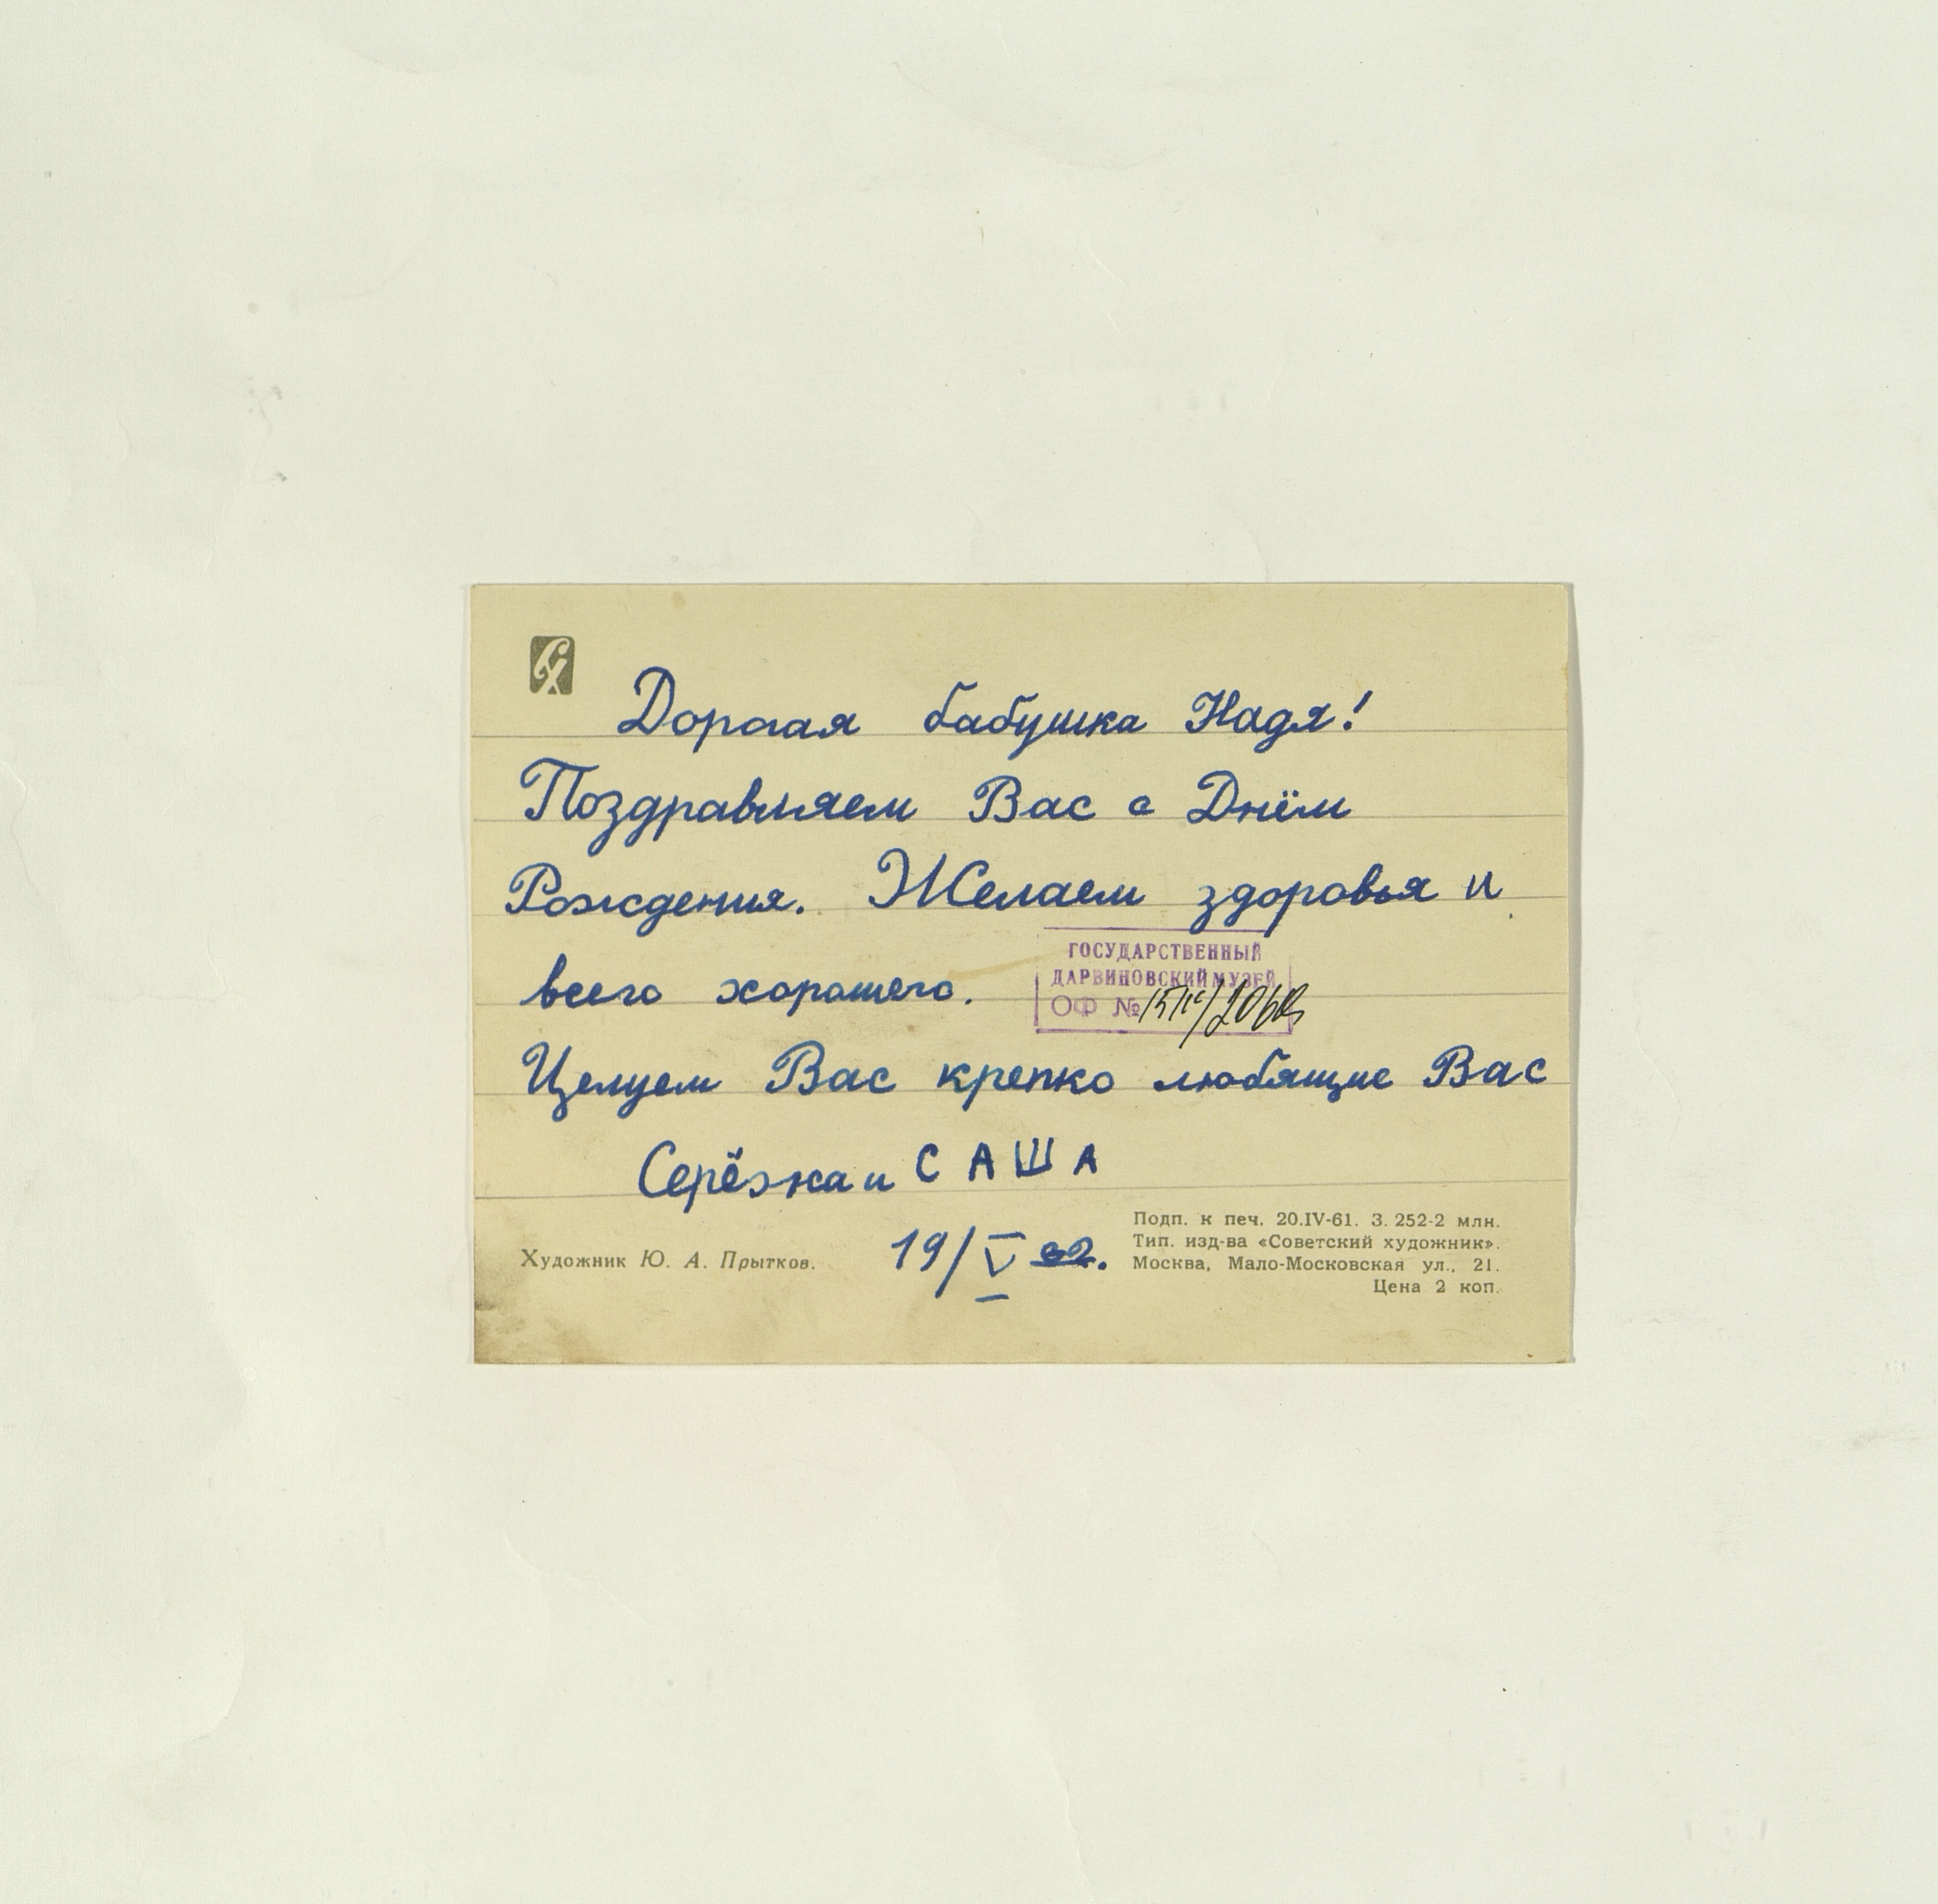 Дорогая бабушка Надя!
Поздравляем Вас с Днём
Рождения. Желаем здоровья и
всего хорошего.
ГОСУДАРСТВЕННЫЙ
ДАРВИНОВСКИЙ МУЗЕЙ
ОФ №
Целуем Вас крепко любящие Вас
Серёжа и САША
19/V 62.
Художник Ю. А. Прытков.
Подп. к печ. 20.IV-61. З. 252-2 млн.
Тип. изд-ва «Советский художник».
Москва, Мало-Московская ул., 21.
Цена 2 коп.